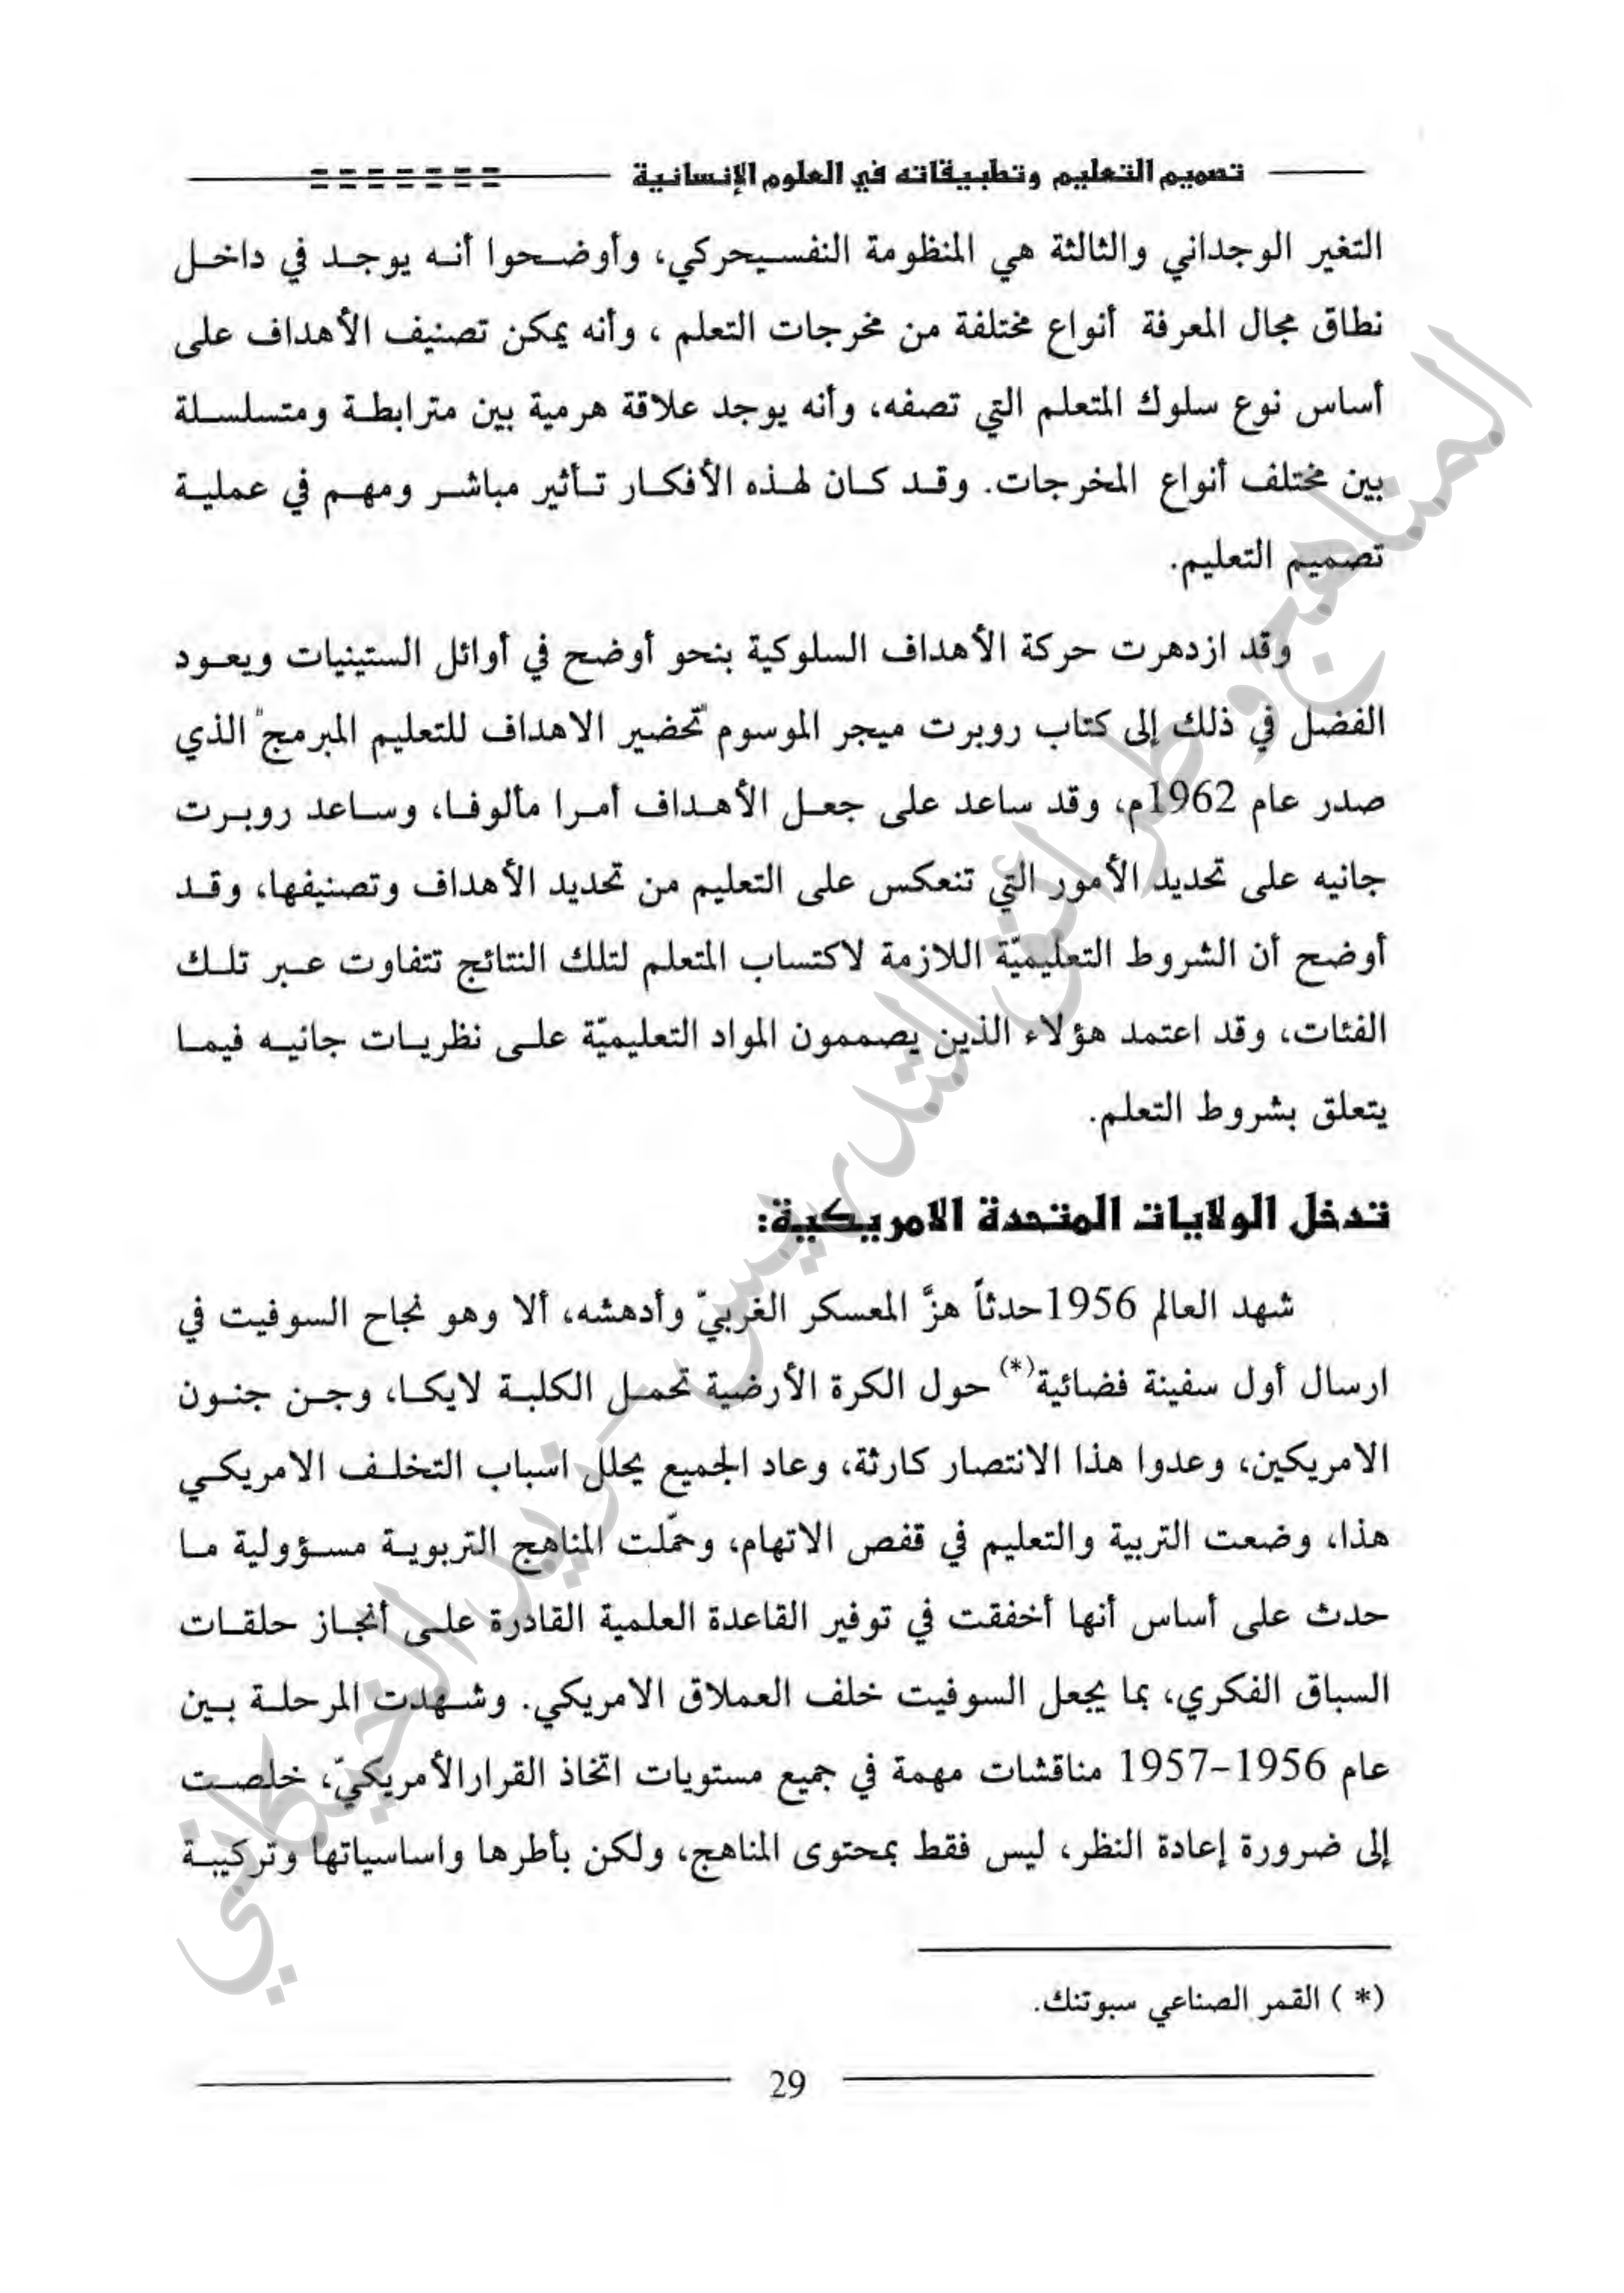 تصميم التعليم وتطبيقاته في العلوم الإنسانية
التغير الوجداني والثالثة هي المنظومة النفسيحركي، وأوضحوا أنه يوجد في داخل
نطاق مجال المعرفة أنواع مختلفة من مخرجات التعلم ، وأنه يمكن تصنيف الأهداف على
أساس نوع سلوك المتعلم التي تصفه، وأنه يوجد علاقة هرمية بين مترابطة ومتسلسلة
بين مختلف أنواع المخرجات. وقد كان لهذه الأفكار تأثير مباشر ومهم في عملية
تصميم التعليم.
وقد ازدهرت حركة الأهداف السلوكية بنحو أوضح في أوائل الستينيات ويعود
الفضل في ذلك إلى كتاب روبرت ميجر الموسوم "تحضير الاهداف للتعليم المبرمج" الذي
صدر عام 1962م، وقد ساعد على جعل الأهداف أمرا مألوفا، وساعد روبرت
جانيه على تحديد الأمور التي تنعكس على التعليم من تحديد الأهداف وتصنيفها، وقد
أوضح أن الشروط التعليميّة اللازمة لاكتساب المتعلم لتلك النتائج تتفاوت عبر تلك
الفئات، وقد اعتمد هؤلاء الذين يصممون المواد التعليميّة على نظريات جانيه فيما
يتعلق بشروط التعلم.
تدخل الولايات المتحدة الامريكية:
شهد العالم 1956حدثاً هزَّ المعسكر الغربيّ وأدهشه، ألا وهو نجاح السوفيت في
ارسال أول سفينة فضائية(*) حول الكرة الأرضية تحمل الكلبة لايكا، وجن جنون
الامريكين، وعدوا هذا الانتصار كارثة، وعاد الجميع يحلل اسباب التخلف الامريكي
هذا، وضعت التربية والتعليم في قفص الاتهام، وحمّلت المناهج التربوية مسؤولية ما
حدث على أساس أنها أخفقت في توفير القاعدة العلمية القادرة على أنجاز حلقات
السباق الفكري، بما يجعل السوفيت خلف العملاق الامريكي. وشهدت المرحلة بين
عام 1956-1957 مناقشات مهمة في جميع مستويات اتخاذ القرارالأمريكيّ، خلصت
إلى ضرورة إعادة النظر، ليس فقط بمحتوى المناهج، ولكن بأطرها واساسياتها وتركيبة
(* ) القمر الصناعي سبوتنك.
29
المناهج وطرائق التدريس - زيد الخيكاني